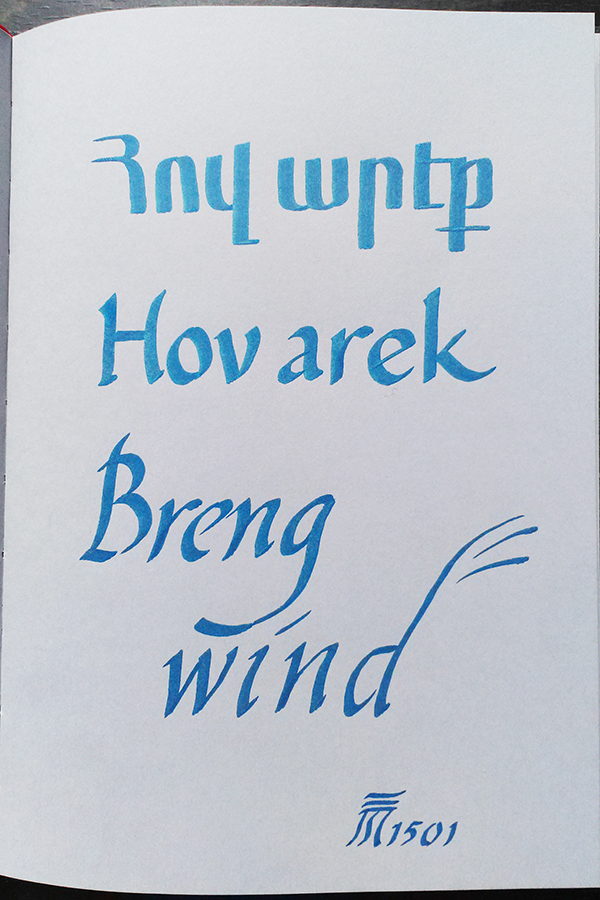 Հով արեք
Hov arek
Breng
wind
1501